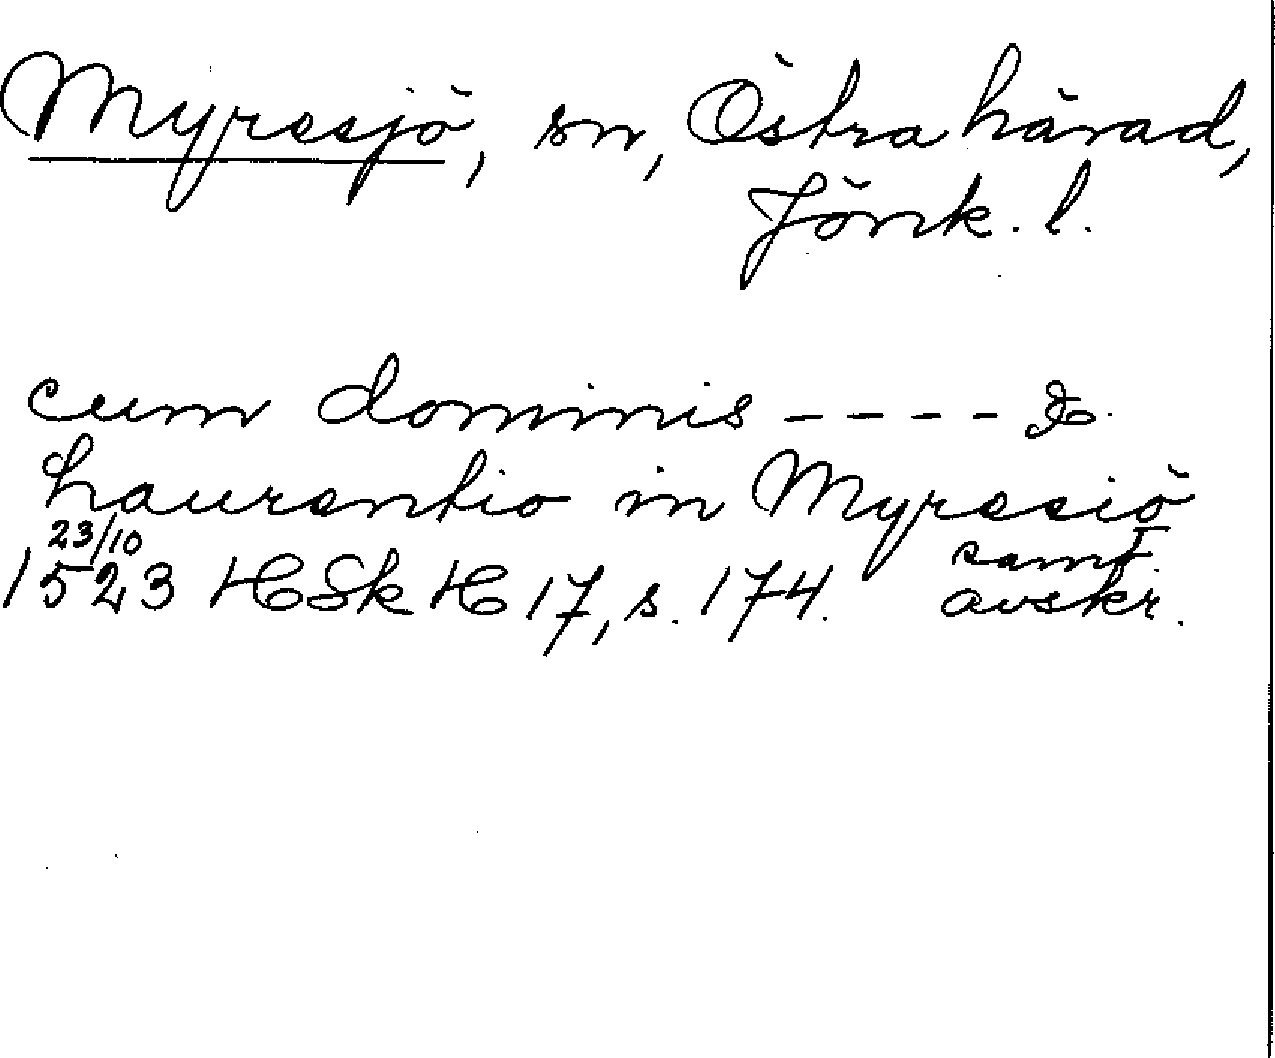 Myresjö, sn, Östra härad,
Jönk. l.
cum dominis ---- &
Laurentio in Myresiö
23/10
1523 HSkH 17, s. 174. samt.
avskr.